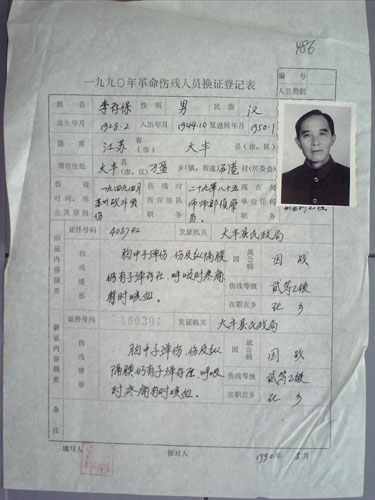 486
一九九〇年革命伤残人员换证登记表
编号
人员类别
姓名 李存保 性别 男 民族 汉
出生年月 1928.2 入伍年月 1944.10 复退转年月 1950.1
籍贯 江苏省 大丰县(市、区)
现在住处 大丰县(市、区) 万盈乡(镇、街道) 村(居委会)
伤残时间、地点及原因 一九四九年 战斗负伤 伤残时所在部队职务 二十九军八十五师 员 现在何单位任何职务
旧证内容摘要
证件号码 408742 发证机关 大丰县民政局
伤残情形 胸中子弹伤,伤及纵隔膜仍有子弹存在,呼吸时疼痛有时咳血。
因战公病 因战
伤残等级 贰等乙级
在职在乡 在乡
新证内容摘要
证件号码 460301 发证机关 大丰县民政局
伤残情形 胸中子弹伤,伤及纵隔膜仍有子弹存在,呼吸时疼痛有时咳血。
因战公病 因战
伤残等级 贰等乙级
在职在乡 在乡
备注
填写人 核对人 1990年8月